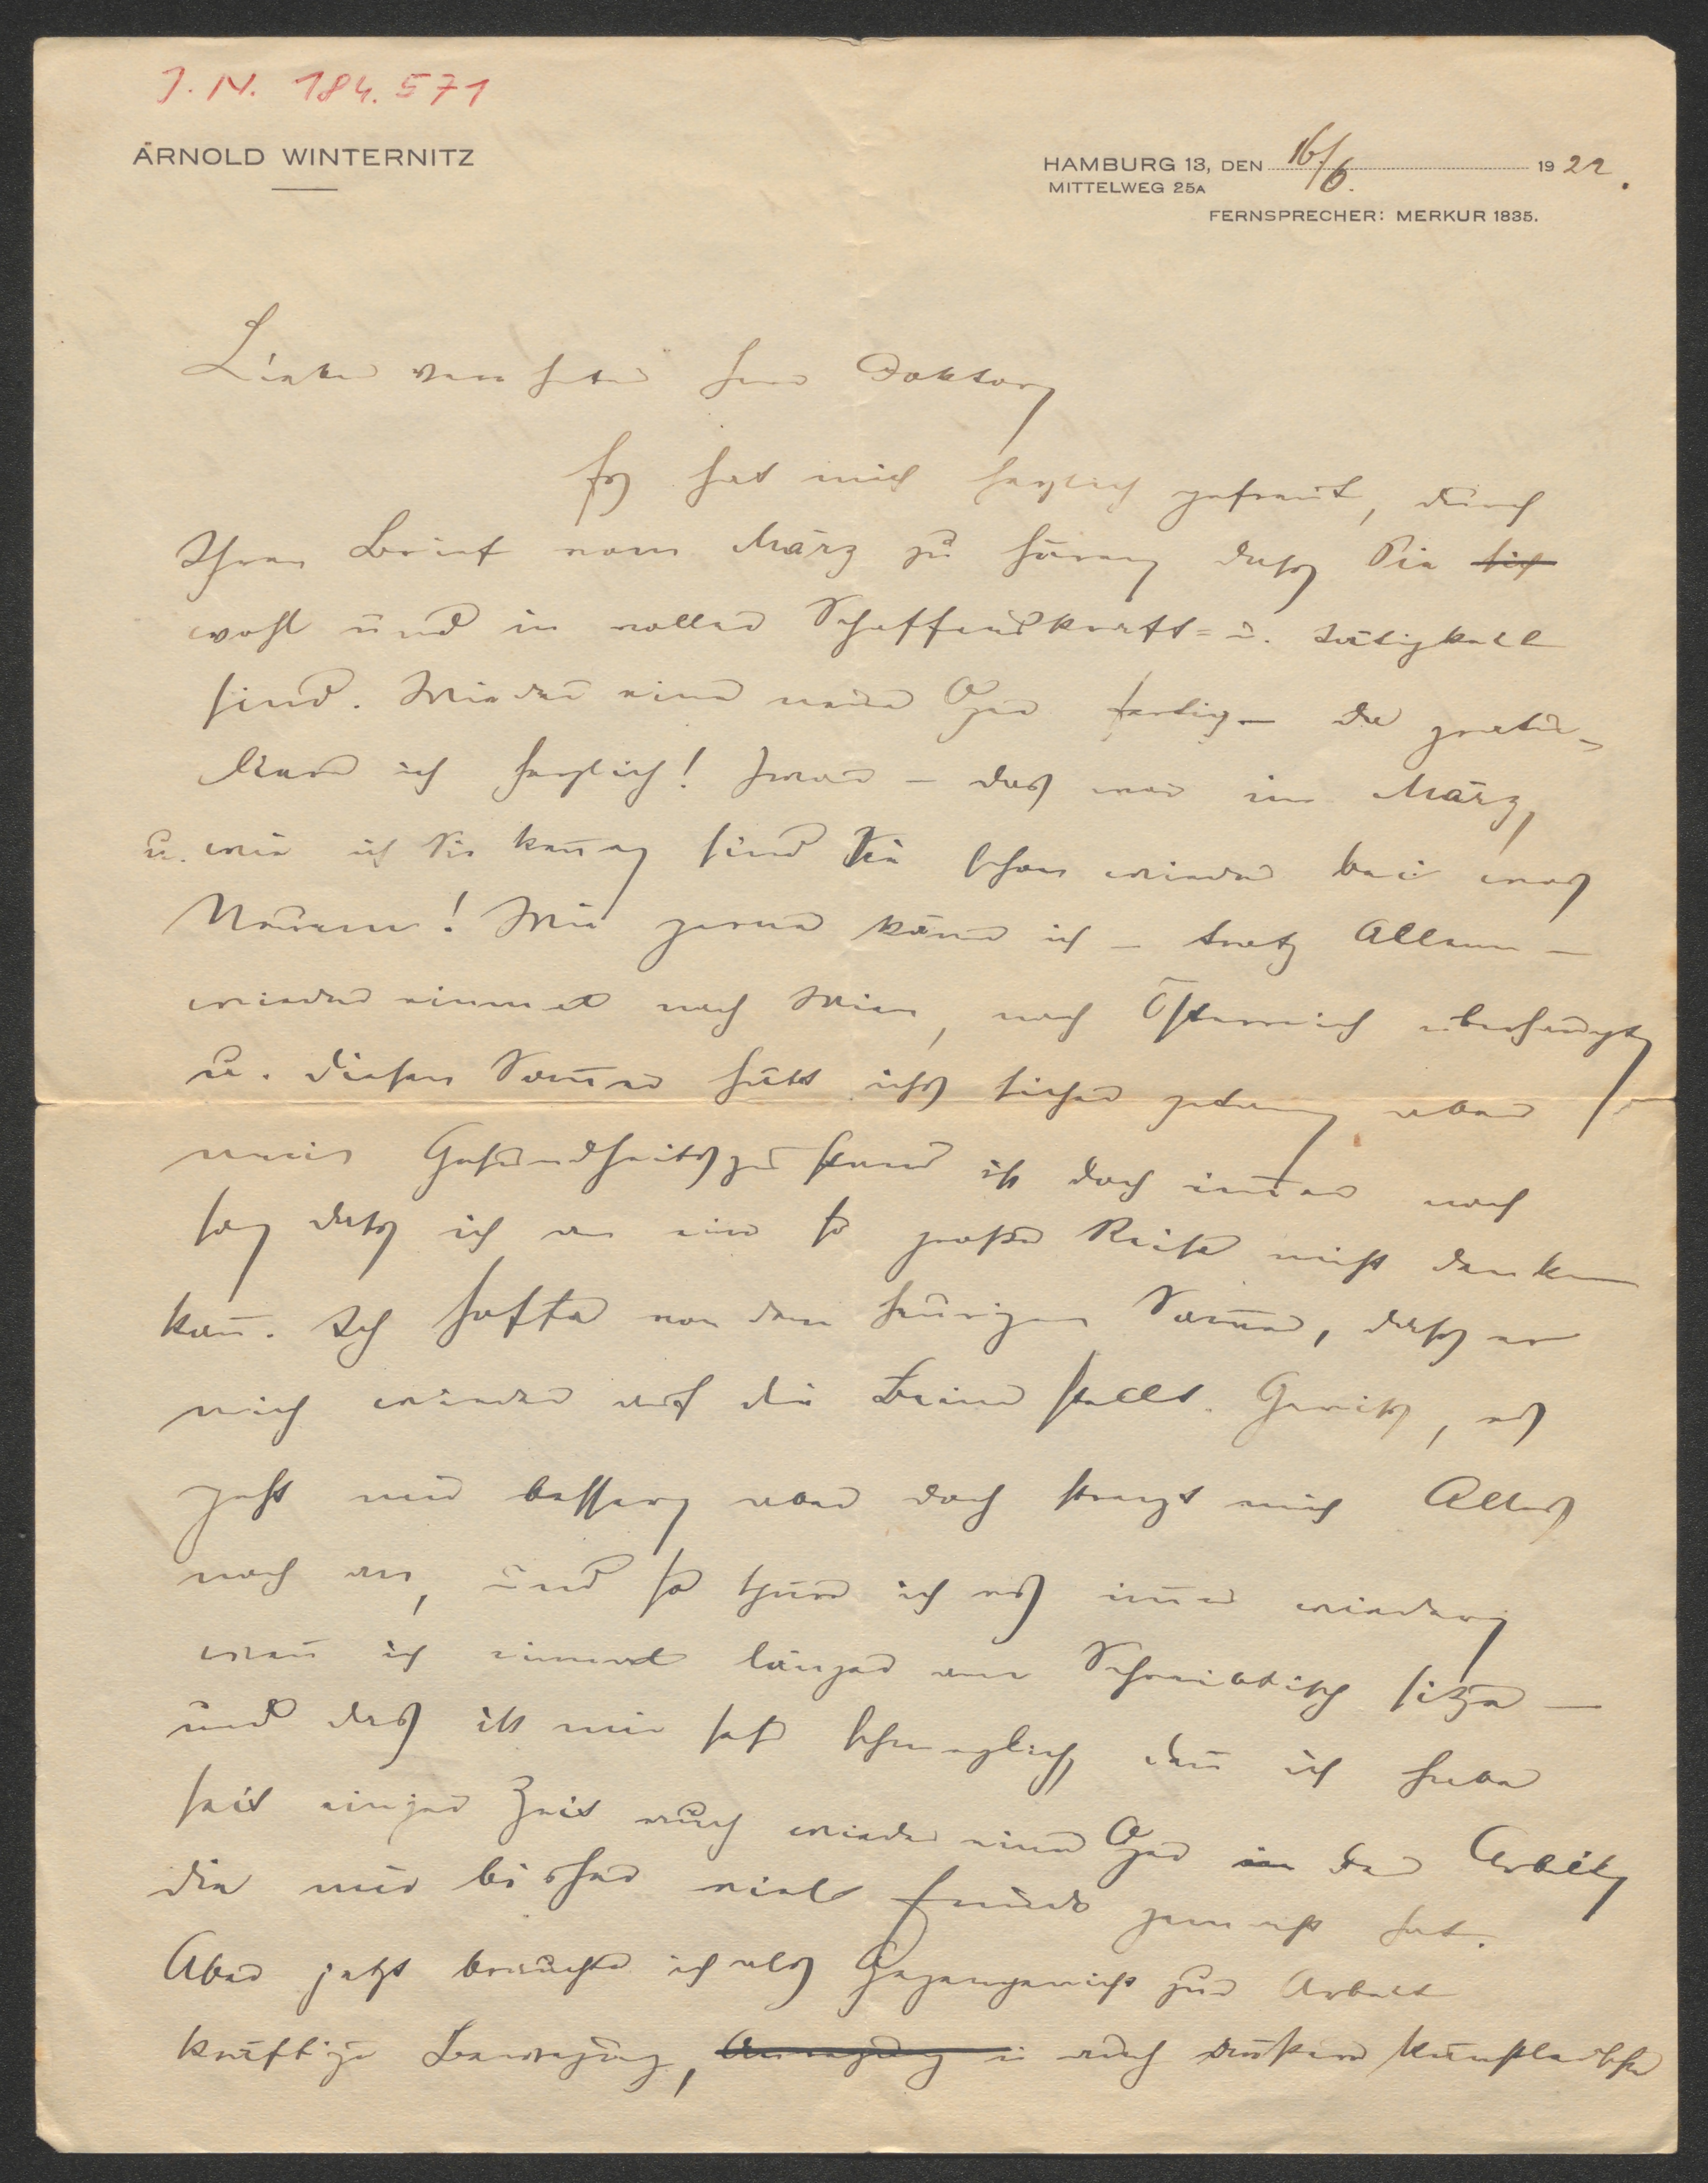 J. N. 184.571
ARNOLD WINTERNITZ
HAMBURG 13, DEN 16/6. 1922.
MITTELWEG 25A
FERNSPRECHER: MERKUR 1835.
Lieber verehrter Herr Doktor,
Es hat mich herzlich gefreut, durch
Ihren Brief vom März zu hören, dass Sie sich
wohl und in voller Schaffenskraft- u. tätigkeit
sind. Wieder eine neue Oper fertig – da gratu-
liere ich herzlich! Zwar – das war im März,
u. wie ich Sie kenne, sind Sie schon wieder bei was
Neuem! Wie gerne käme ich – trotz Allem –
wieder einmal nach Wien, nach Österreich überhaupt,
u. diesen Sommer hätt ichs sicher getan, aber
mein Gesundheitszustand ist doch immer noch
so, dass ich an eine so große Reise nicht denken
kann. Ich hoffe von dem heurigen Sommer, dass er
mich wieder auf die Beine stellt. Gewiss, es
geht mir besser, aber doch strengt mich Alles
noch an, und so spüre ich es immer wieder,
wenn ich einmal länger am Schreibtisch sitze –
und das ist mir sehr schmerzlich, denn ich habe
seit einiger Zeit auch wieder eine Oper in der Arbeit,
die mir bisher viel Freude gemacht hat.
Aber jetzt brauchte ich als Gegengewicht zur Arbeit
kräftige Bewegung, Anregung u auch äußere künstlerische